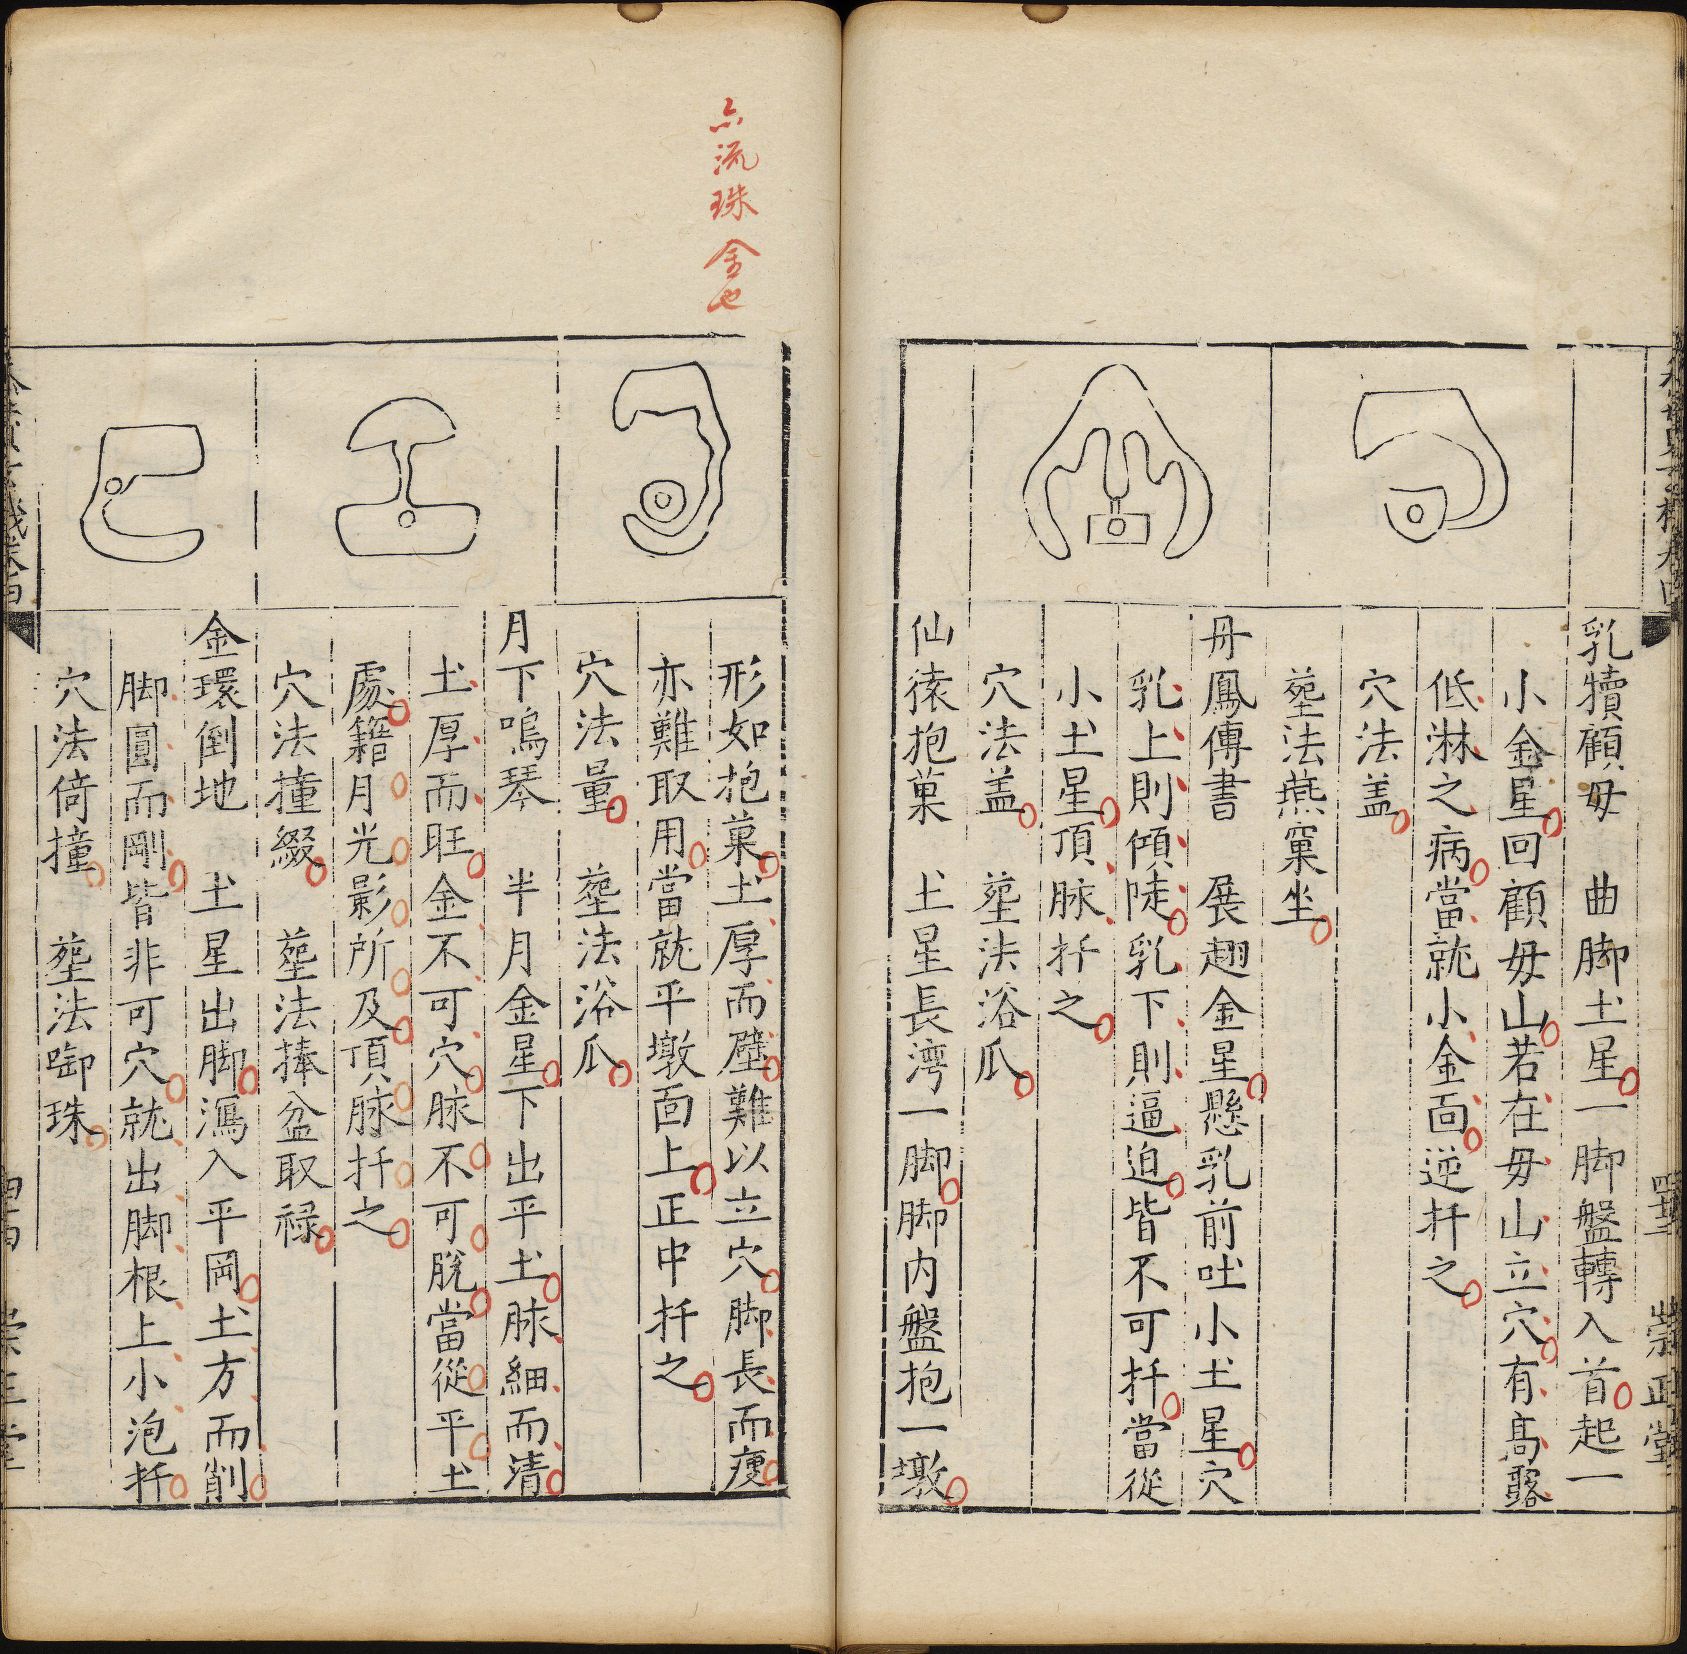 乳犢顧母　曲脚土星一脚盤轉入首起一
小金星回顧母山若在母山立穴有高露
低淋之病當就小金面逆扦之
穴法盖
塟法燕窠坐
丹鳳傳書　展翅金星懸乳前吐小土星穴
乳上則傾陡乳下則逼迫皆不可扦當從
小土星頂脉扦之
穴法盖　塟法浴瓜
仙猿抱菓　土星長湾一脚脚内盤抱一墩
形如抱菓土厚而壁難以立穴脚長而瘦
亦難取用當就平墩面上正中扦之
穴法量　塟法浴瓜
月下鳴琴　半月金星下出平土脉細而清
土厚而旺金不可穴脉不可脫當從平土
處籍月光影所及頂脉扦之
穴法撞綴　塟法捧盆取禄
金環倒地　土星出脚瀉入平岡土方而削
脚圓而剛皆非可穴就出脚根上小泡扦
穴法倚撞　塟法啣珠
流珠金也
崇正堂